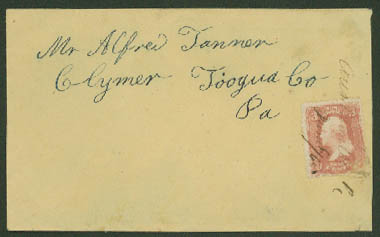 Mr Alfred Tanner
Clymer Tiogua Co
Pa